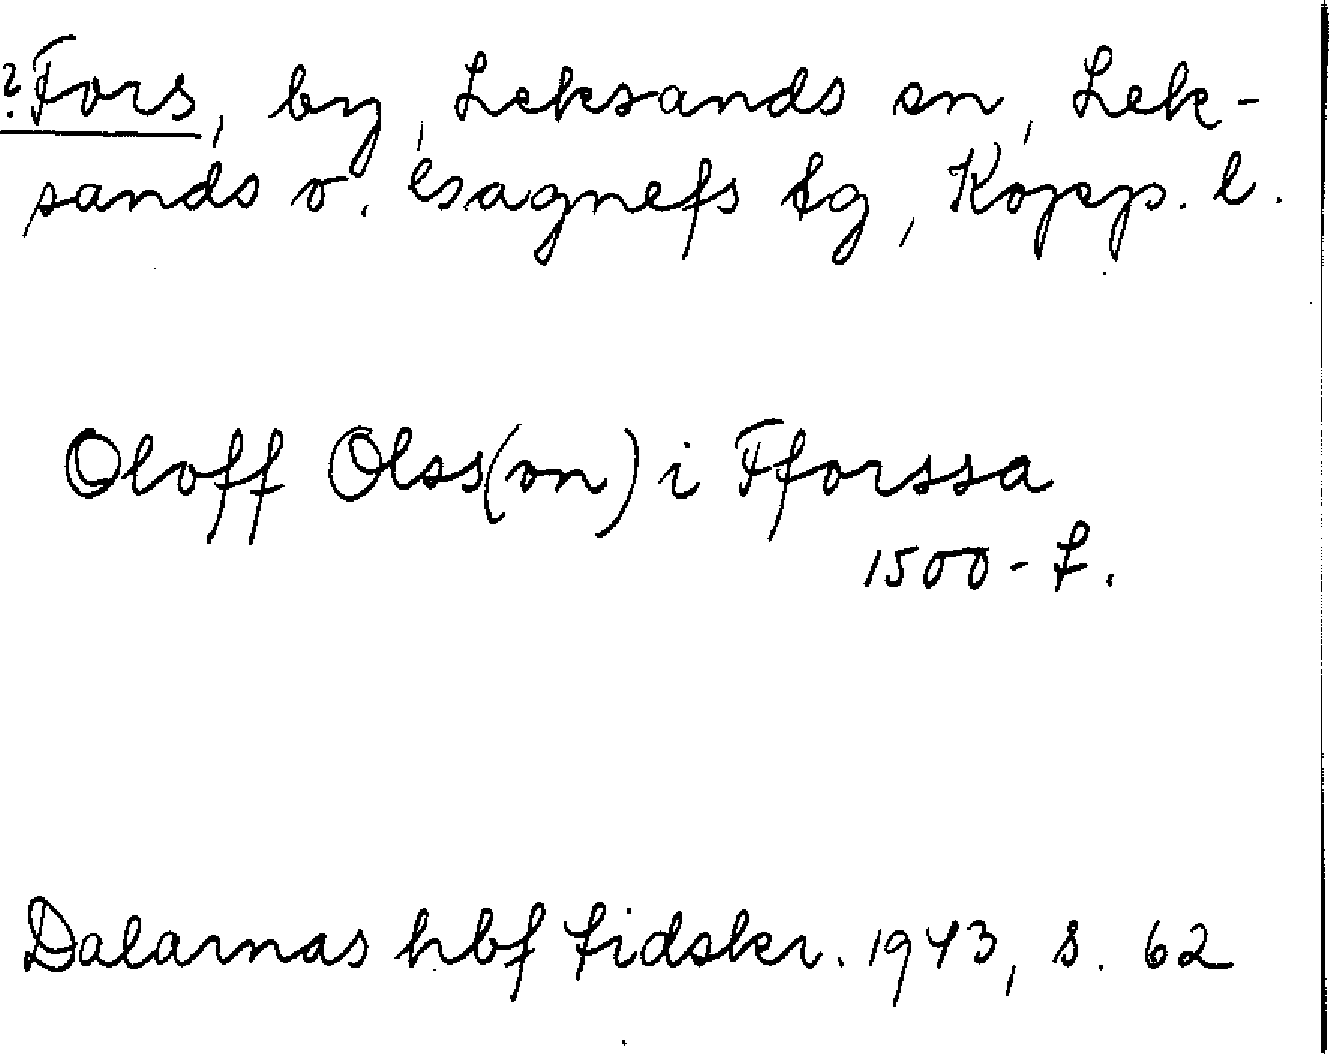 ? Fors, by, Leksands sn, Lek-
sands o. Gagnefs tg, Kopp. l.
Oloff Olss(on) i Fforssa
1500-t.
Dalarnas hbf tidskr. 1943, s. 62